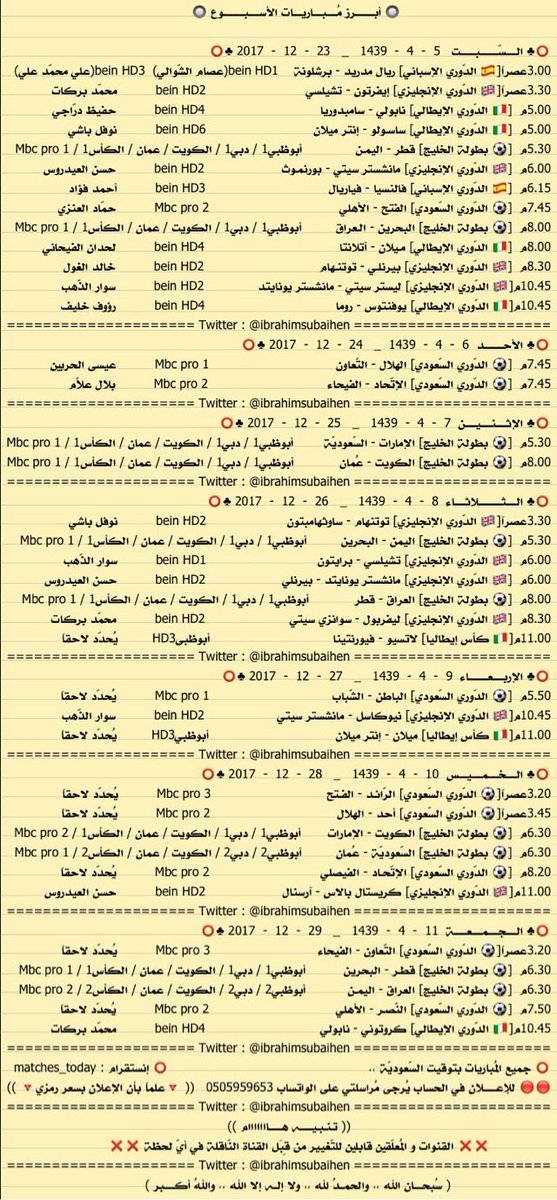 🔘 أبـــرز مُـبــاريــات الأسـبــــوع 🔘
⭕♣ الـسّـبــت 5 - 4 - 1439 _ 23 - 12 - 2017 ♣⭕
3.00عصراً[🇪🇸 الدّوري الإسباني] ريال مدريد - برشلونة bein HD1(عصام الشّوالي) bein HD3(علي محمّد علي)
3.30عصراً[🇬🇧 الدّوري الإنجليزي] إيفرتون - تشيلسي bein HD2 محمّد بركات
5.00م [🇮🇹 الدّوري الإيطالي] نابولي - سامبدوريا bein HD4 حفيظ درّاجي
5.00م [🇮🇹 الدّوري الإيطالي] ساسولو - إنتر ميلان bein HD6 نوفل باشي
5.30م [⚽ بطولة الخليج] قطر - اليمن أبوظبي1 / دبي1 / الكويت / عمان / الكأس1 / Mbc pro 1
6.00م [🇬🇧 الدّوري الإنجليزي] مانشستر سيتي - بورنموث bein HD2 حسن العيدروس
6.15م [🇪🇸 الدّوري الإسباني] فالنسيا - فياريال bein HD3 أحمد فؤاد
7.45م [⚽ الدّوري السّعودي] الفتح - الأهلي Mbc pro 2 حمّاد العنزي
8.00م [⚽ بطولة الخليج] البحرين - العراق أبوظبي1 / دبي1 / الكويت / عمان / الكأس1 / Mbc pro 1
8.00م [🇮🇹 الدّوري الإيطالي] ميلان - أتلانتا bein HD4 لحدان الفيحاني
8.30م [🇬🇧 الدّوري الإنجليزي] بيرنلي - توتنهام bein HD2 خالد الغول
10.45م[🇬🇧 الدّوري الإنجليزي] ليستر سيتي - مانشستر يونايتد bein HD2 سوار الذّهب
10.45م[🇮🇹 الدّوري الإيطالي] يوفنتوس - روما bein HD4 رؤوف خليف
==================== Twitter : @ibrahimsubaihen ====================
⭕♣ الأحـــد 6 - 4 - 1439 _ 24 - 12 - 2017 ♣⭕
7.45م [⚽ الدّوري السّعودي] الهلال - التّعاون Mbc pro 1 عيسى الحربين
7.45م [⚽ الدّوري السّعودي] الإتّحاد - الفيحاء Mbc pro 2 بلال علاّم
==================== Twitter : @ibrahimsubaihen ====================
⭕♣ الإثـنـيــن 7 - 4 - 1439 _ 25 - 12 - 2017 ♣⭕
5.30م [⚽ بطولة الخليج] الإمارات - السّعوديّة أبوظبي1 / دبي1 / الكويت / عمان / الكأس1 / Mbc pro 1
8.00م [⚽ بطولة الخليج] الكويت - عُمان أبوظبي1 / دبي1 / الكويت / عمان / الكأس1 / Mbc pro 1
==================== Twitter : @ibrahimsubaihen ====================
⭕♣ الـثّــلاثــاء 8 - 4 - 1439 _ 26 - 12 - 2017 ♣⭕
3.30عصراً[🇬🇧 الدّوري الإنجليزي] توتنهام - ساوثهامبتون bein HD2 نوفل باشي
5.30م [⚽ بطولة الخليج] اليمن - البحرين أبوظبي1 / دبي1 / الكويت / عمان / الكأس1 / Mbc pro 1
6.00م [🇬🇧 الدّوري الإنجليزي] تشيلسي - برايتون bein HD1 سوار الذّهب
6.00م [🇬🇧 الدّوري الإنجليزي] مانشستر يونايتد - بيرنلي bein HD2 حسن العيدروس
8.00م [⚽ بطولة الخليج] العراق - قطر أبوظبي1 / دبي1 / الكويت / عمان / الكأس1 / Mbc pro 1
8.30م [🇬🇧 الدّوري الإنجليزي] ليفربول - سوانزي سيتي bein HD2 محمّد بركات
11.00م[🇮🇹 كأس إيطاليا] لاتسيو - فيورنتينا أبوظبيHD3 يُحدّد لاحقاً
==================== Twitter : @ibrahimsubaihen ====================
⭕♣ الإربـعــاء 9 - 4 - 1439 _ 27 - 12 - 2017 ♣⭕
5.50م [⚽ الدّوري السّعودي] الباطن - الشّباب Mbc pro 1 يُحدّد لاحقاً
10.45م[🇬🇧 الدّوري الإنجليزي] نيوكاسل - مانشستر سيتي bein HD2 سوار الذّهب
11.00م[🇮🇹 كأس إيطاليا] ميلان - إنتر ميلان أبوظبيHD3 يُحدّد لاحقاً
==================== Twitter : @ibrahimsubaihen ====================
⭕♣ الـخـمـيــس 10 - 4 - 1439 _ 28 - 12 - 2017 ♣⭕
3.20عصراً[⚽ الدّوري السّعودي] الرّائد - الفتح Mbc pro 3 يُحدّد لاحقاً
3.45عصراً[⚽ الدّوري السّعودي] أحد - الهلال Mbc pro 2 يُحدّد لاحقاً
6.30م [⚽ بطولة الخليج] الكويت - الإمارات أبوظبي1 / دبي1 / الكويت / عمان / الكأس1 / Mbc pro 2
6.30م [⚽ بطولة الخليج] السّعوديّة - عُمان أبوظبي2 / دبي2 / الكويت / عمان / الكأس2 / Mbc pro 1
8.20م [⚽ الدّوري السّعودي] الإتّحاد - الفيصلي Mbc pro 2 يُحدّد لاحقاً
11.00م[🇬🇧 الدّوري الإنجليزي] كريستال بالاس - آرسنال bein HD2 حسن العيدروس
==================== Twitter : @ibrahimsubaihen ====================
⭕♣ الـجـمـعــة 11 - 4 - 1439 _ 29 - 12 - 2017 ♣⭕
3.20عصراً[⚽ الدّوري السّعودي] التّعاون - الفيحاء Mbc pro 3 يُحدّد لاحقاً
6.30م [⚽ بطولة الخليج] قطر - البحرين أبوظبي1 / دبي1 / الكويت / عمان / الكأس1 / Mbc pro 1
6.30م [⚽ بطولة الخليج] العراق - اليمن أبوظبي2 / دبي2 / الكويت / عمان / الكأس2 / Mbc pro 2
7.50م [⚽ الدّوري السّعودي] النّصر - الأهلي Mbc pro 2 يُحدّد لاحقاً
10.45م[🇮🇹 الدّوري الإيطالي] كروتوني - نابولي bein HD4 محمّد بركات
==================== Twitter : @ibrahimsubaihen ====================
⭕ جميع المُباريات بتوقيت السّعوديّة ،، ⭕ إنستقرام : matches_today
🔴🔴 للإعــلان في الحساب يُرجى مُراسلتي على الواتساب 0505959653 (( 🔻 علماً بأن الإعلان بسعر رمزي 🔻 ))
==================== Twitter : @ibrahimsubaihen ====================
(( تـنـبـيــه هــااااااام ))
❌❌ القنوات و المُعلّقين قابلين للتّغيير من قبَل القناة النّاقلة في أيّ لحظة ❌❌
==================== Twitter : @ibrahimsubaihen ====================
( سُبـحـان الله ،، والحمـدُ لله ،، ولا إلـه إلا الله ،، واللهُ أكـبـر )